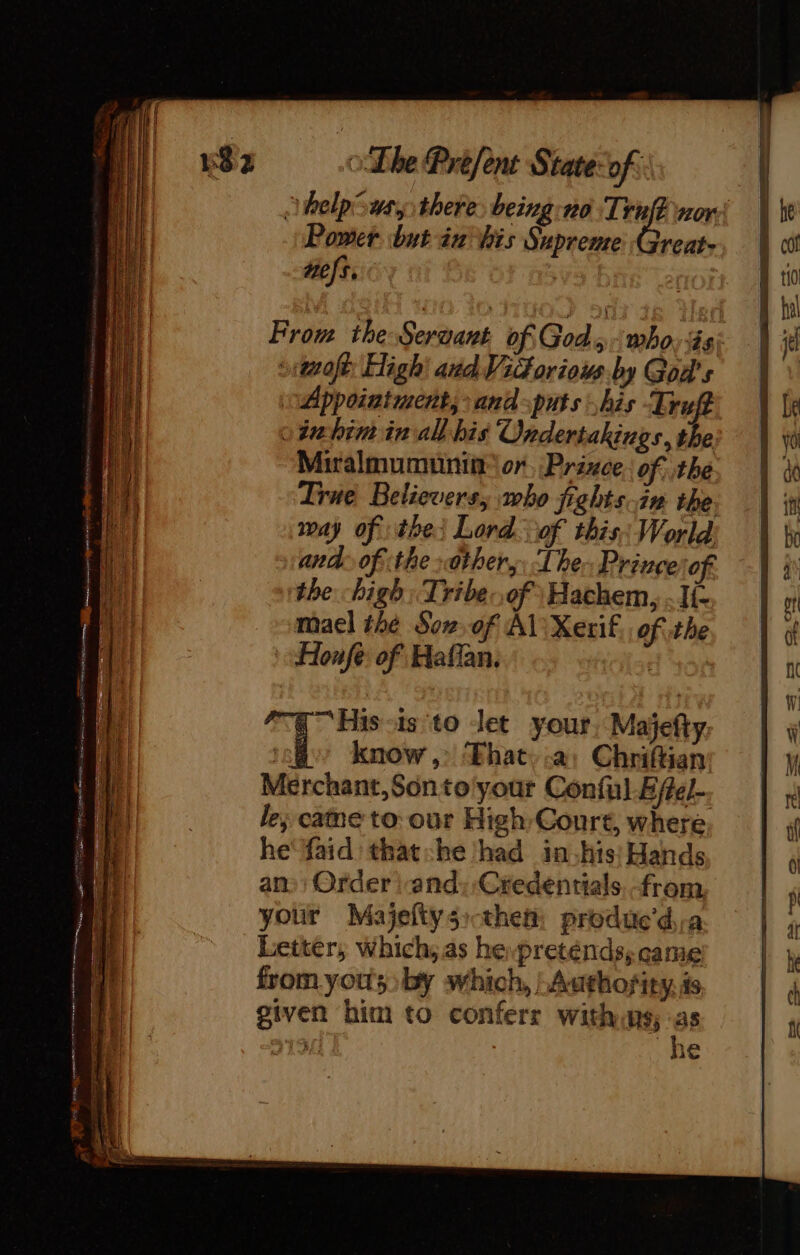 182 The Preſent State of
help us, there being no Truſt nor
Power but in his Supreme Great-
neſs.
From the Servant of God, who is
moſt High and Victorious by God's
Appointment, and puts his Truſt
in him in all his Undertakings, the
Miralmumunin or Prince of the
True Believers, who fights in the
way of the Lord of this World
and of the other, The Prince of
the high Tribe of Hachem, Iſ-
mael the Son of Al Xerif of the
Houſe of Haſſan.
THis is to let your Majeſty
know, That a Chriſtian
Merchant, Son to your Conſul Eſtel-
le, came to our High Court, where
he ſaid that he had in his Hands
an Order and Credentials from
your Majeſty; then produc'd a
Letter, which, as he pretends, came
from you; by which, Authority is
given him to conferr with us, as
he
he
cof
tio
hal
jec
Le
yo
do
in
bo
gr
of
no